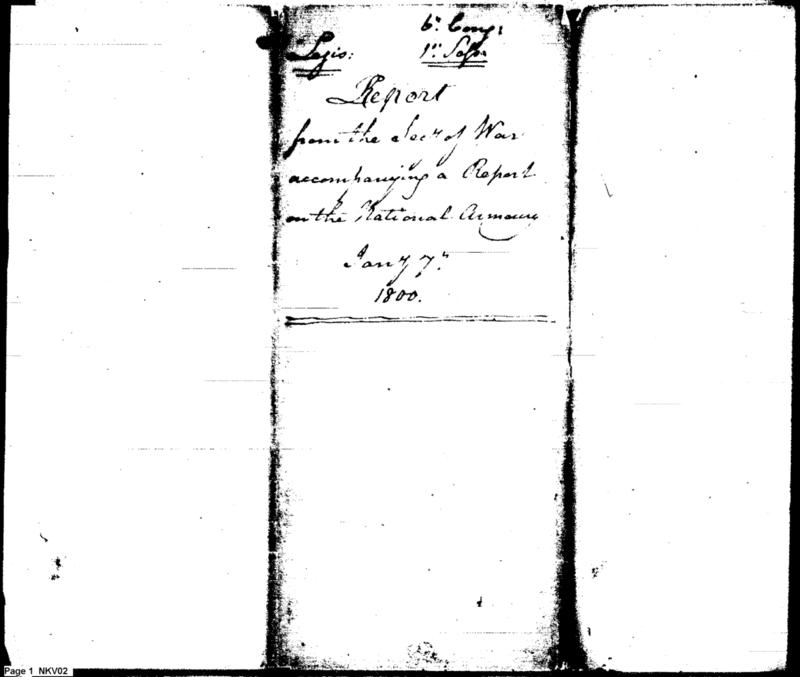 6th Cong:
Legis: 1st Sess.
Report
from the Secy of War
accompanying a Report
on the National Armoury
Jany 7th
1800.
Page 1 NKV02